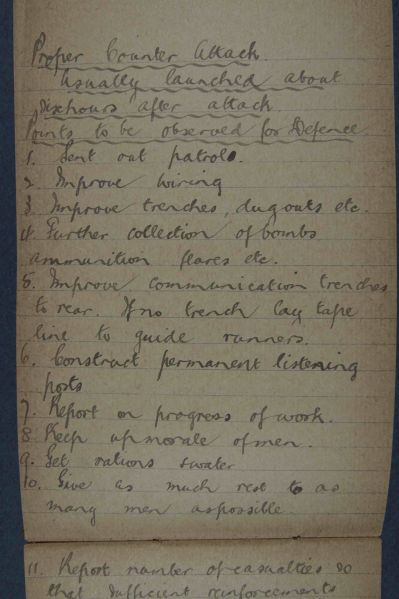 Proper Counter Attack.
Usually launched about
six hours after attack.
Points to be observed for Defence
1. Sent out patrols.
2. Improve wiring
3. Improve trenches, dugouts etc.
4. Further collection of bombs
ammunition flares etc.
5. Improve communication trenches
to rear. If no trench lay tape
line to guide runners.
6. Construct permanent listening
posts
7. Report on progress of work.
8. Keep up morale of men.
9. Get rations & water
10. Give as much rest to as
many men as possible
11. Report number of casualties so
that sufficient reinforcements